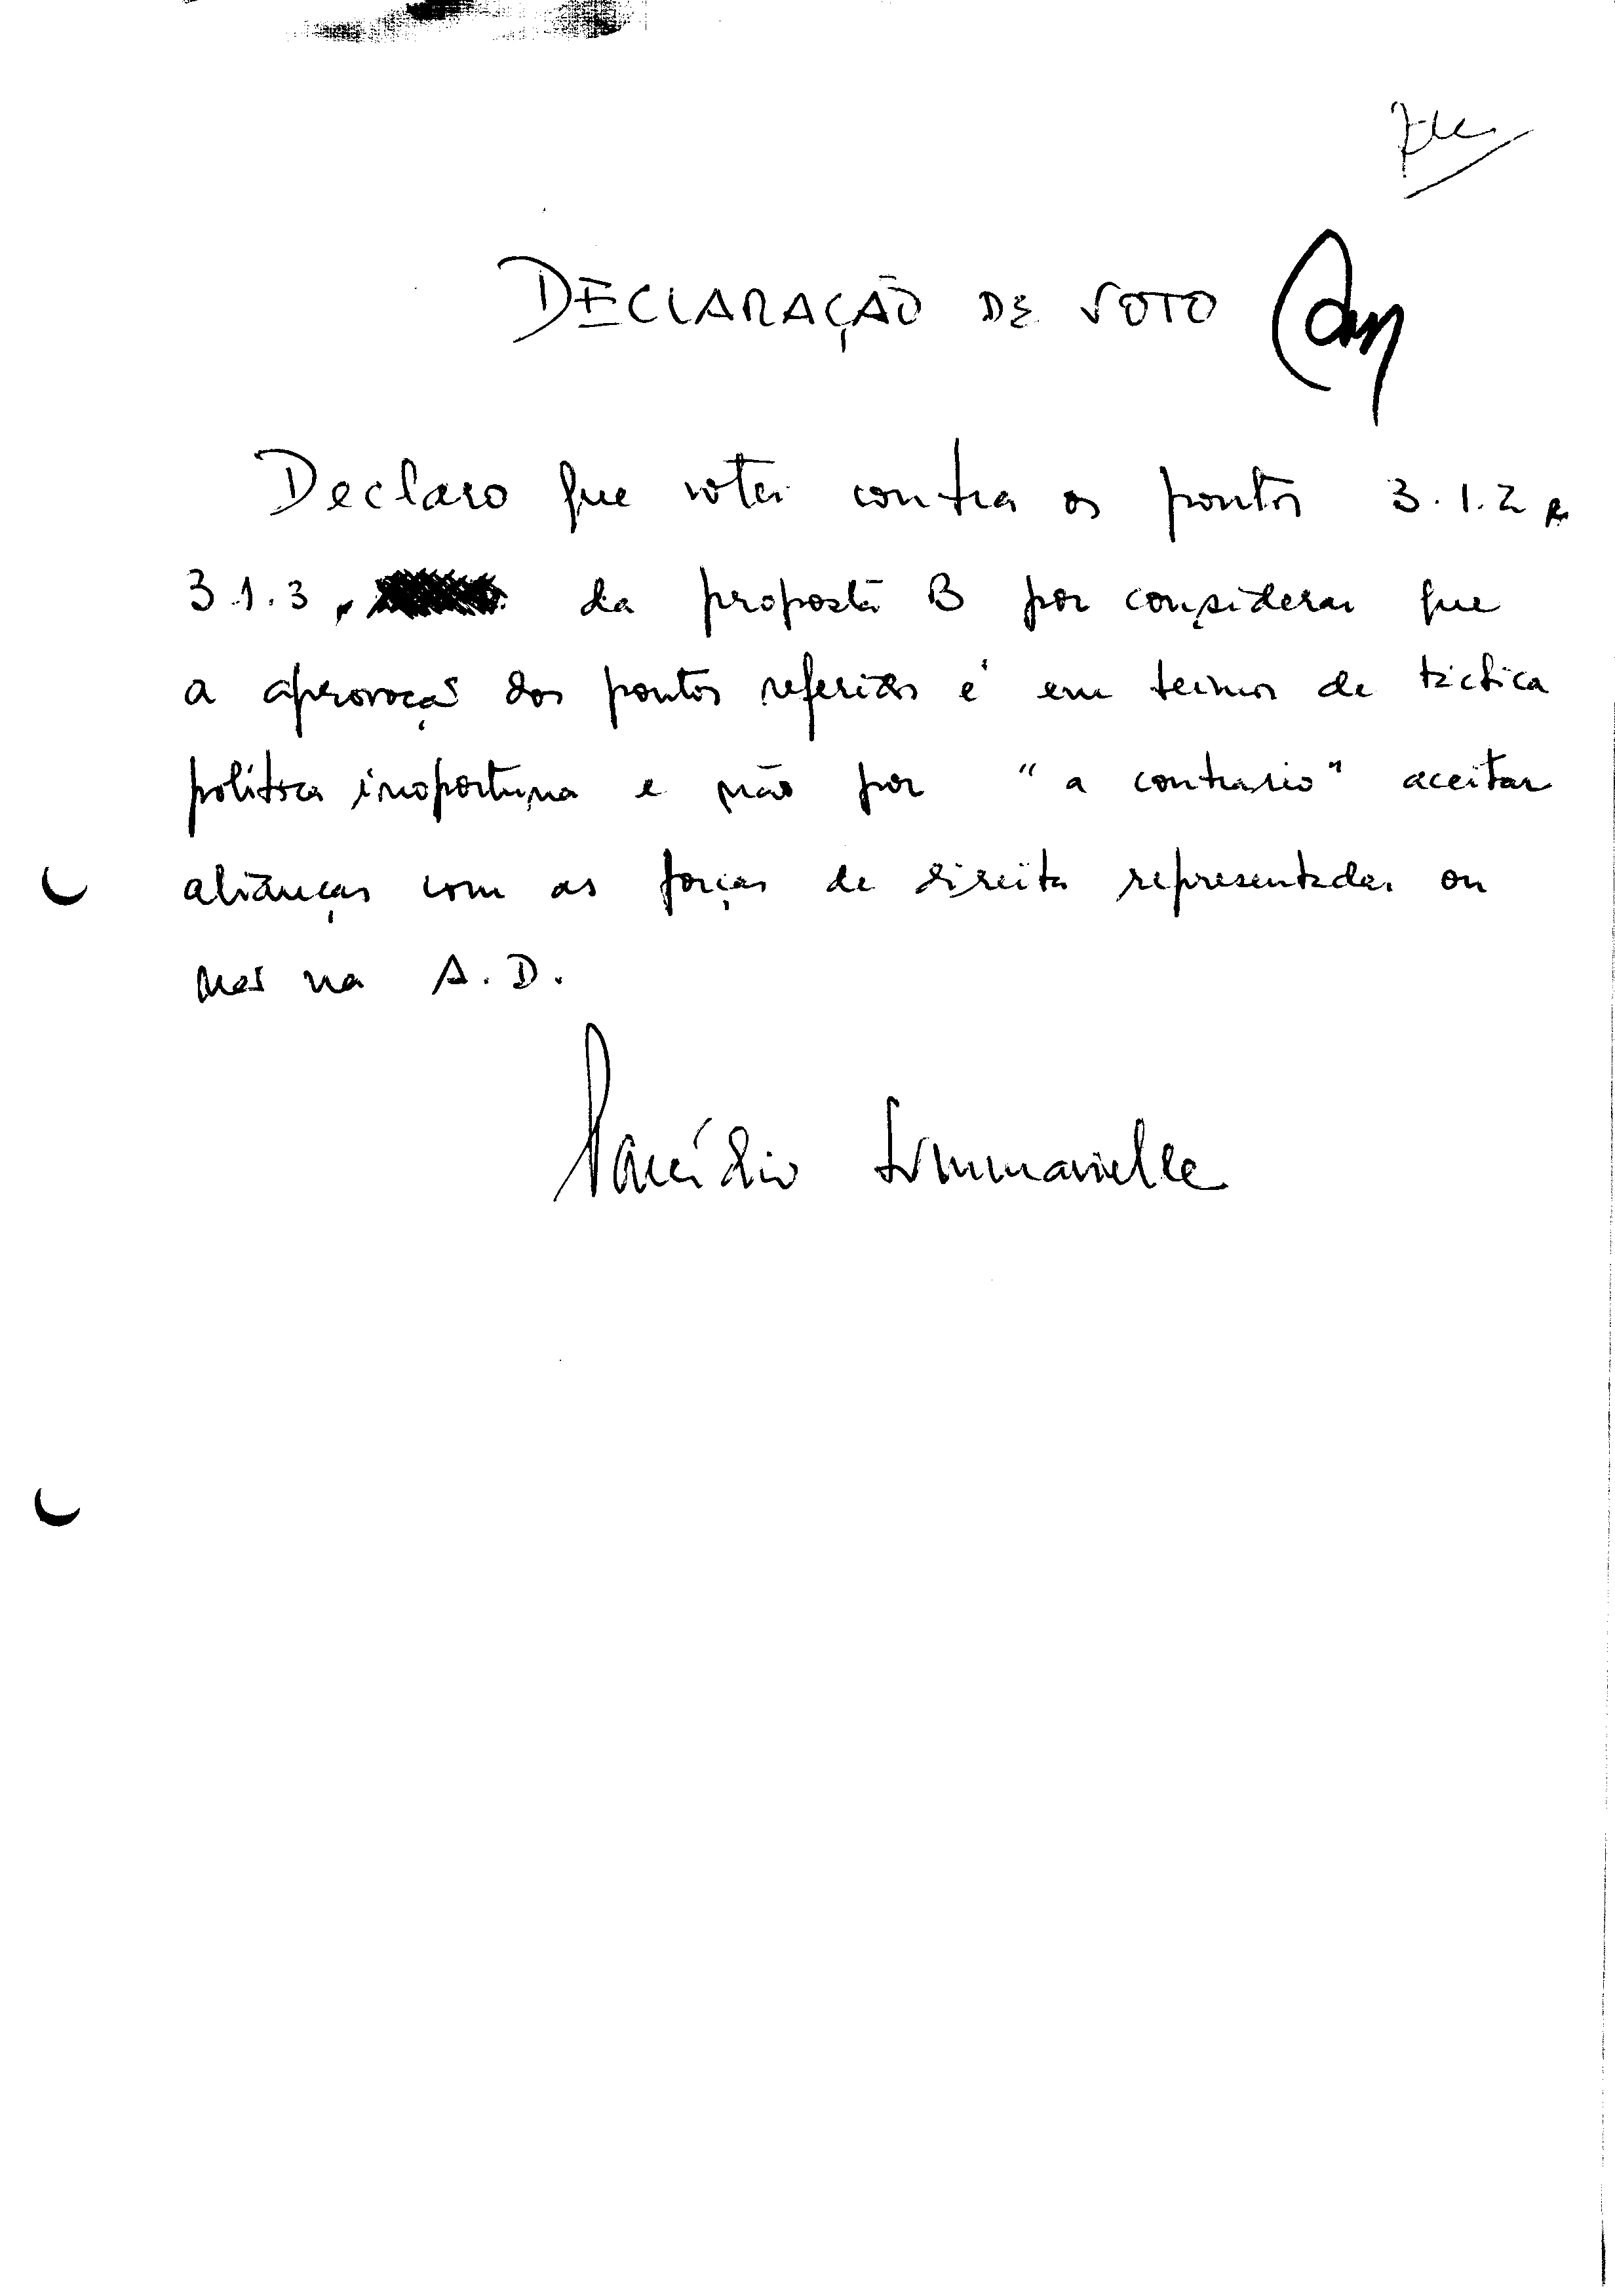 DECLARAÇÃO DE VOTO
Declaro que votei contra os pontos 3.1.2 e
3.1.3, da proposta B por considerar que
a aprovação dos pontos referidos é em termos de táctica
política inoportuna e não por "a contrario" aceitar
alianças com as forças de direita representadas ou
não na A.D.